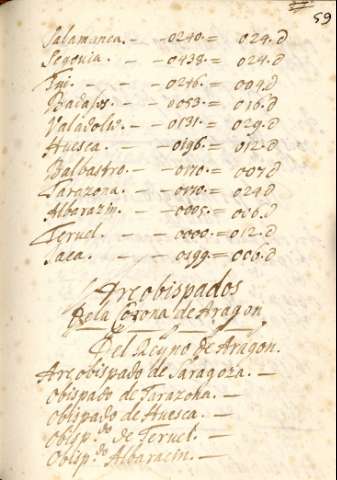 59
Salamanca. - - 0240.= 024.d
Segovia. - - 0438.= 024.d
Tui. - - - 0246.= 004.d
Badajos. - - 0053.= 016.d
Valadoli. - - 0131.= 029.d
Huesca. - - 0196.= 012.d
Balbastro. - - 0170.= 007d
Tarazona. - - 0170.= 024d
Albarazin. - - 0005.= 006.d
Teruel. - - 0000.= 012.d
Jaca. - - 0199.= 006.d
Arcobispados
De la Corona de Aragon
Del Reyno de Aragon.
Arcobispado de Saragoza. -
Obispado de Tarazona. -
Obispado de Huesca. -
Obisp.do de Teruel. -
Obisp.do Albaracin. -